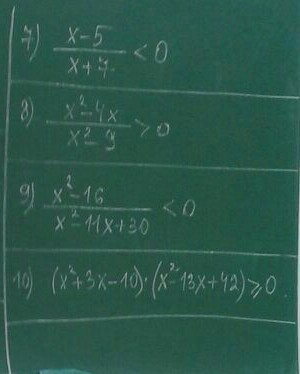 7) x-5/x+7 < 0
8) x²-4x/x²-9 > 0
9) x²-16/x²-11x+30 < 0
10) (x²+3x-10)·(x²-13x+42) ⩾ 0